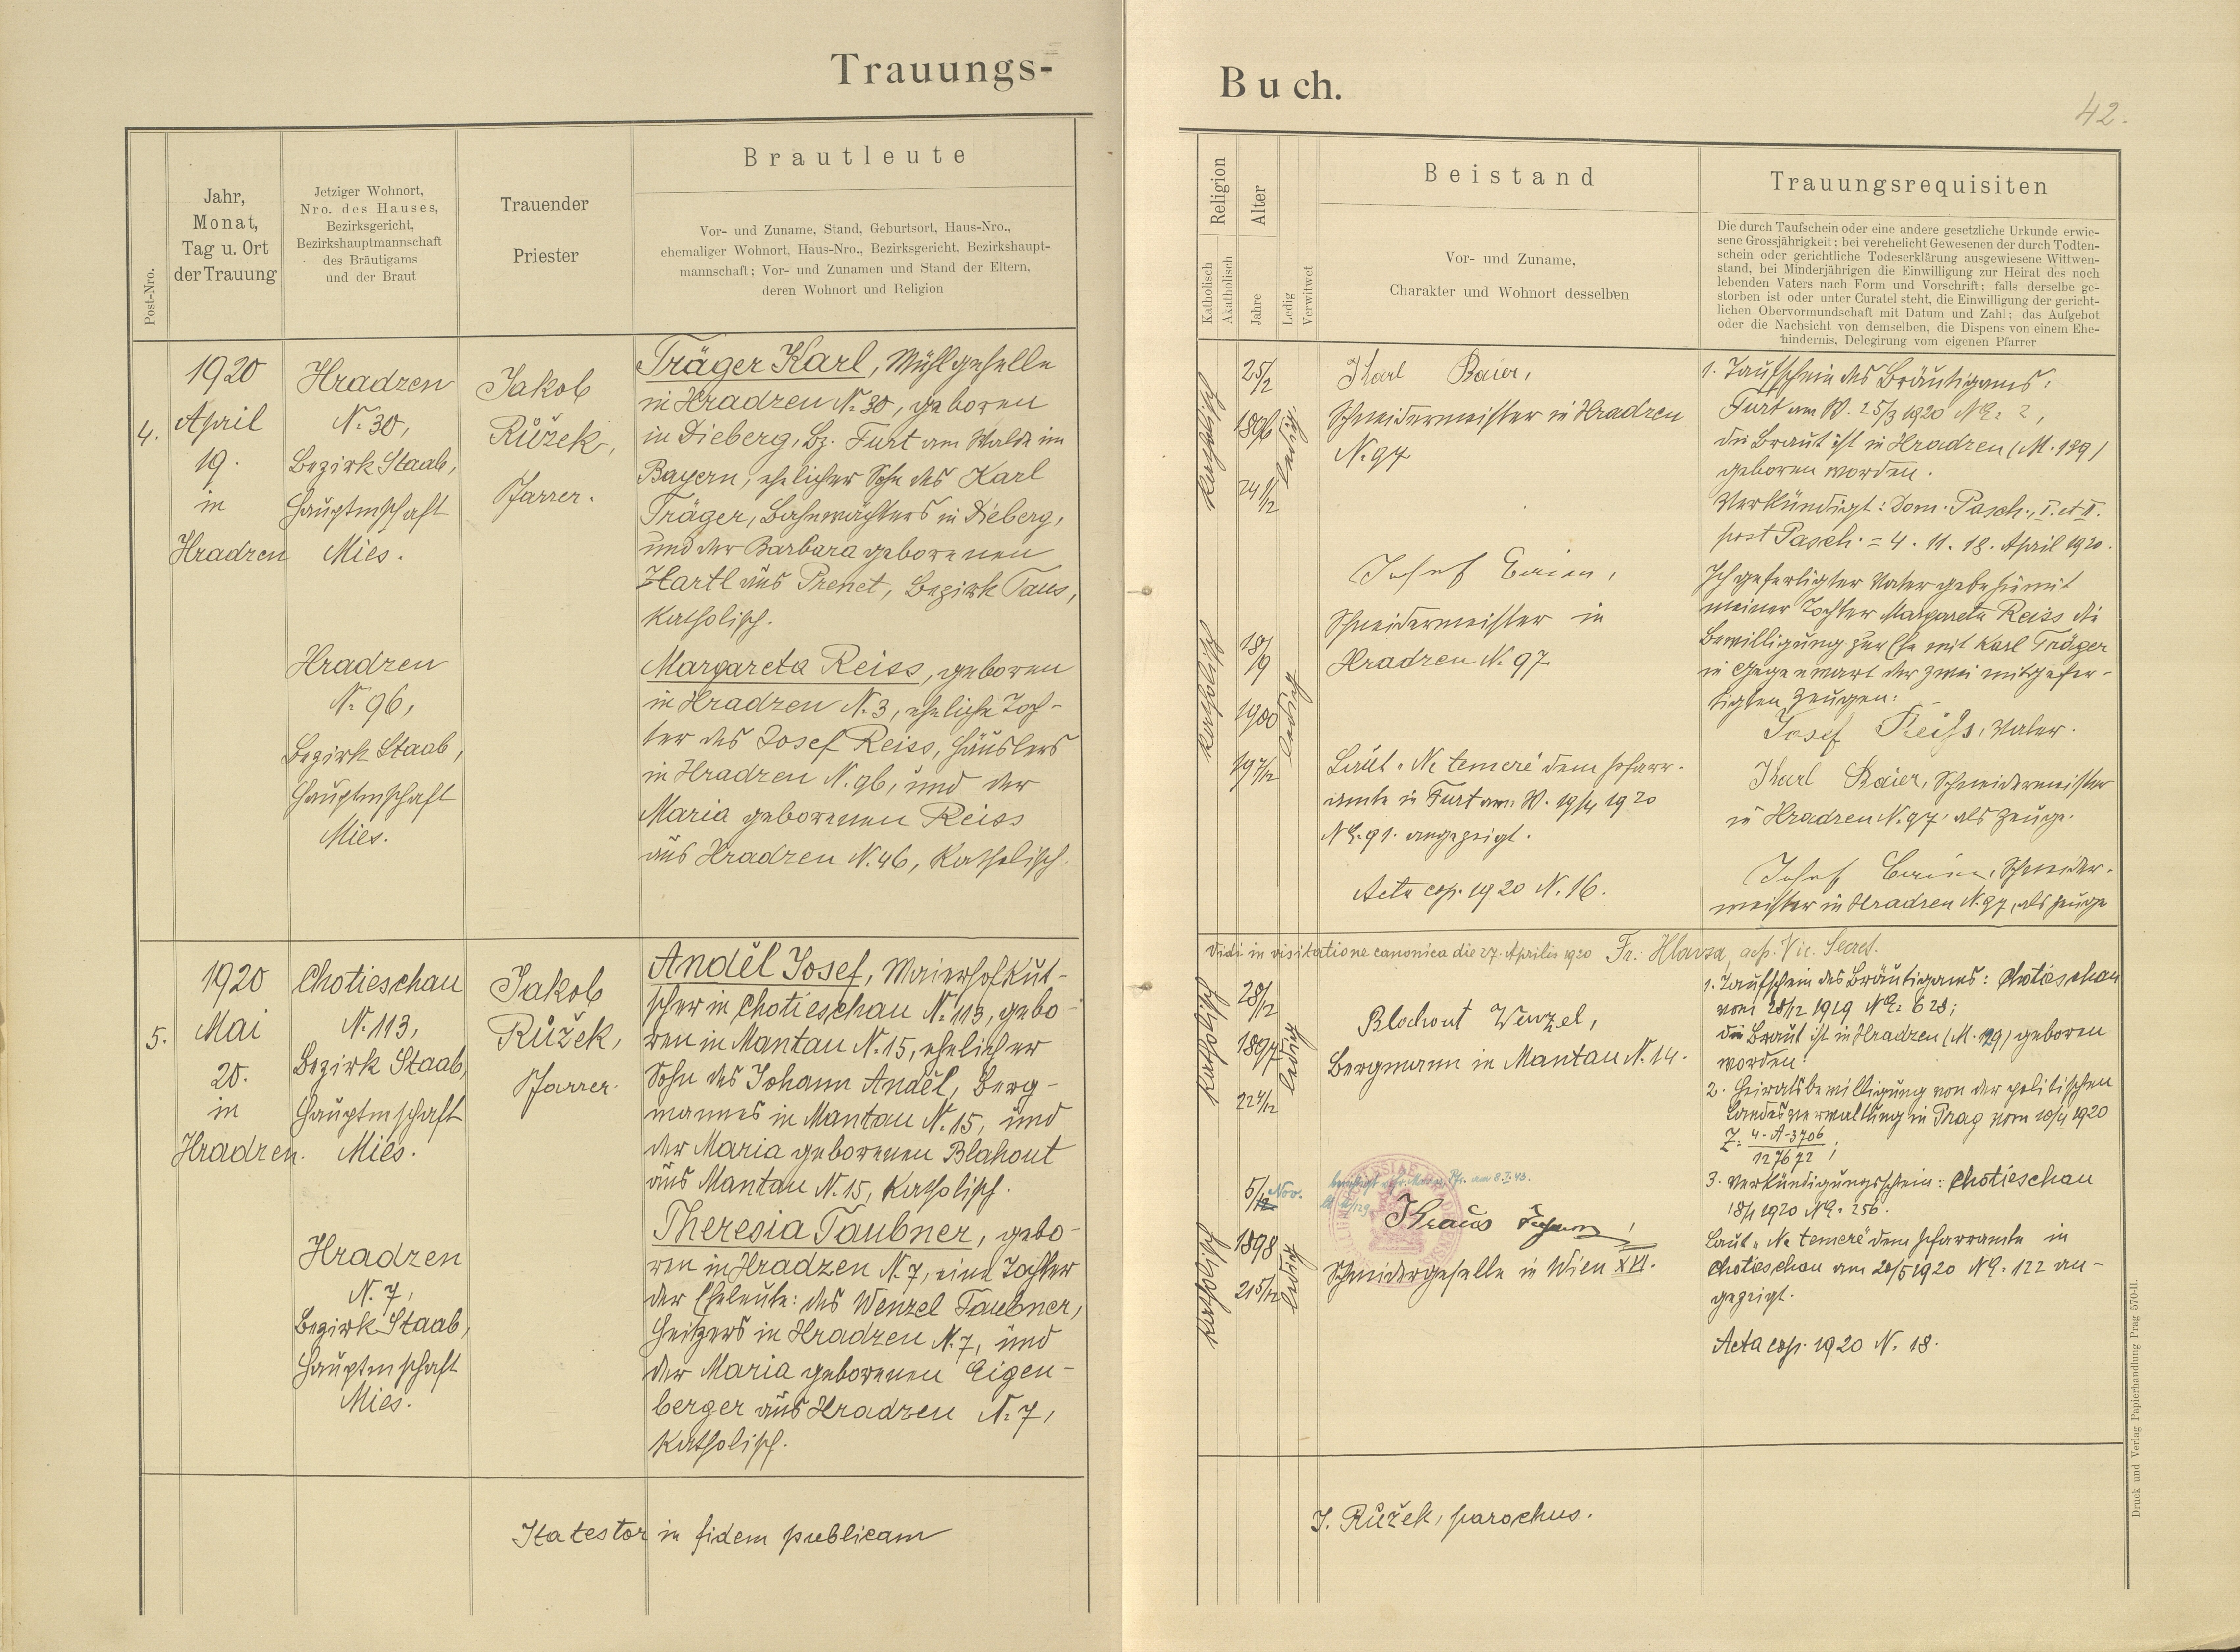 Trauungs-
Buch.
42.
Post-Nro.
Jahr,
Monat,
Tag u. Ort
der Trauung
Jetziger Wohnort,
Nro. des Hauses,
Bezirksgericht,
Bezirkshauptmannschaft
des Bräutigams
und der Braut
Trauender
Priester
Brautleute
Vor- und Zuname, Stand, Geburtsort, Haus-Nro.,
ehemaliger Wohnort, Haus-Nro., Bezirksgericht, Bezirkshaupt-
mannschaft; Vor- und Zunamen und Stand der Eltern,
deren Wohnort und Religion
Religion
Katholisch
Akatholisch
Alter
Jahre
Ledig
Verwitwet
Beistand
Vor- und Zuname,
Charakter und Wohnort desselben
Trauungsrequisiten
Die durch Taufschein oder eine andere gesetzliche Urkunde erwie-
sene Grossjährigkeit; bei verehelicht Gewesenen der durch Todten-
schein oder gerichtliche Todeserklärung ausgewiesene Wittwen-
stand, bei Minderjährigen die Einwilligung zur Heirat des noch
lebenden Vaters nach Form und Vorschrift; falls derselbe ge-
storben ist oder unter Curatel steht, die Einwilligung der gericht-
lichen Obervormundschaft mit Datum und Zahl; das Aufgebot
oder die Nachsicht von demselben, die Dispens von einem Ehe-
hindernis, Delegirung vom eigenen Pfarrer
4.
1920
April
19.
in
Hradzen
Hradzen
N. 30,
Bezirk Staab,
Hauptmschaft
Mies.
Jakob
Růžek,
Pfarrer.
Träger Karl, Mühlgeselle
in Hradzen N. 30, geboren
in Dieberg, Bz. Furt am Walde im
Bayern, ehelicher Sohn des Karl
Träger, Bahnwächters in Dieberg,
und der Barbara geborenen
Hartl aus Prenet, Bezirk Taus,
katholisch.
Hradzen
N. 96,
Bezirk Staab,
Hauptmschaft
Mies.
Margareta Reiss, geboren
in Hradzen N. 3, eheliche Toch-
ter des Josef Reiss, Häuslers
in Hradzen N. 96, und der
Maria geborenen Reiss
aus Hradzen N. 46, katholisch.
katholisch
25/2
1896
24 1/12
ledig
katholisch
18/9
1900
19 7/12
ledig
Karl Baier,
Schneidermeister in Hradzen
N. 97
Josef
Schneidermeister in
Hradzen N. 97
Laut „Ne temere" dem Pfarr-
amte in Furt am W. 19/4 1920
NE. 91. angezeigt.
Acta cop. 1920 N. 16.
1. Taufschein des Bräutigams:
Furt am W. 25/3 1920 NE. 2,
die Braut ist in Hradzen (M. 139)
geboren worden.
Verkündigt: Dom. Pasch., I. et II.
post Pasch. = 4. 11. 18. April 1920.
Ich gefertigter Vater gebe hiemit
meiner Tochter Margareta Reiss die
Bewilligung zur Ehe mit Karl Träger
in Gegenwart der zwei mitgefer-
tigten Zeugen:
Josef Reiss, Vater.
Karl Baier, Schneidermeister
in Hradzen N. 97 als Zeuge.
Josef Schneider-
meister in Hradzen N. 97, als Zeuge
Vidi in visitatione canonica die 27. Aprilis 1920 Fr. Hlavsa, aep. Vic. Secret.
5.
1920
Mai
20.
in
Hradzen.
Chotieschau
N. 113,
Bezirk Staab,
Hauptmschaft
Mies.
Jakob
Růžek,
Pfarrer.
Anděl Josef, Maierhofkut-
scher in Chotieschau N. 113, gebo-
ren in Mantau N. 15, ehelicher
Sohn des Johann Anděl, Berg-
mannes in Mantau N. 15, und
der Maria geborenen Blahout
aus Mantau N. 15, katholisch.
Hradzen
N. 7,
Bezirk Staab,
Hauptmschaft
Mies.
Theresia Taubner, gebo-
ren in Hradzen N. 7, eine Tochter
der Eheleute: des Wenzel Taubner,
Heitzers in Hradzen N. 7, und
der Maria geborenen Eigen-
berger aus Hradzen N. 7,
katholisch.
katholisch
28/12
1897
22 4/12
ledig
katholisch
5/12 Nov.
1898
21 5/12
ledig
Blahout Wenzel,
Bergmann in Mantau N. 14.
am 8.I.43.
Kraus
Schneidergeselle in Wien XVI.
1. Taufschein des Bräutigams: Chotieschau
vom 28/12 1919 NE. 628;
die Braut ist in Hradzen (M. 129) geboren
worden!
2. Heiratsbewilligung von der politischen
Landesverwaltung in Prag vom 10/4 1920
Z. 4-A-3706
127672;
3. Verkündigungsschein: Chotieschau
18/1 1920 NE. 256.
Laut „Ne temere" dem Pfarramte in
Chotieschau am 20/5 1920 NE. 122 an-
gezeigt.
Acta cop. 1920 N. 18.
Ita testor in fidem publicam
J. Růžek, parochus.
Druck und Verlag Papierhandlung Prag 570-II.